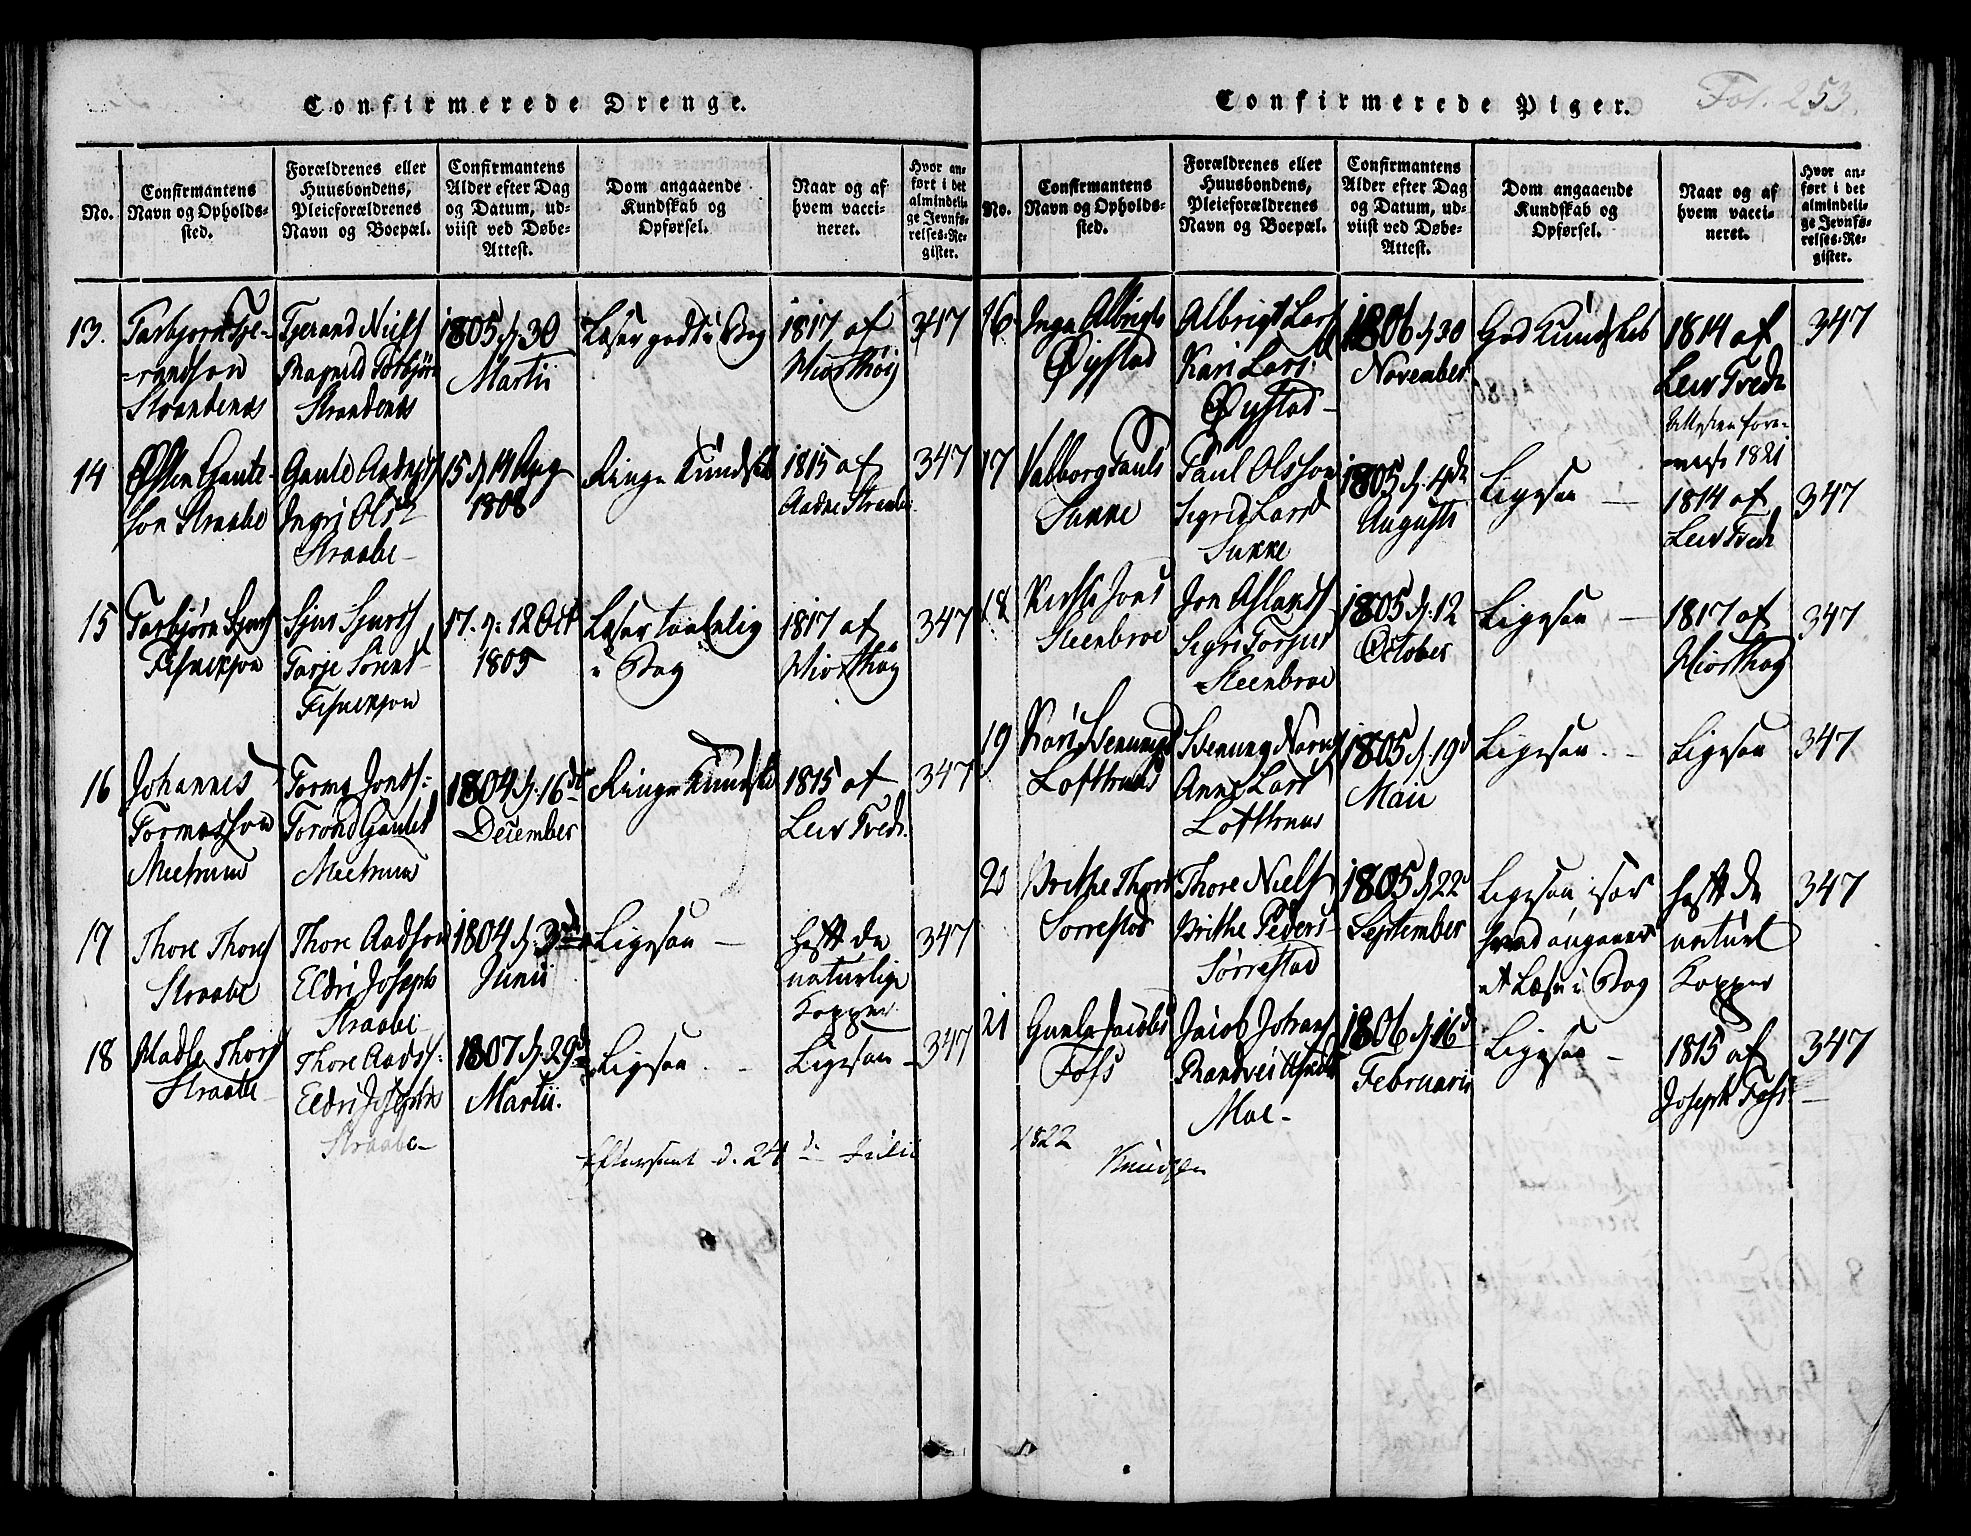 Confirmerede Drenge.
No.
Confirmantens
Navn og Opholds-
sted.
Forældrenes eller
Huusbondens,
Pleieforældrenes
Navn og Boepæl.
Confirmantens
Alder efter Dag
og Datum, ud-
viist ved Døbe-
Attest.
Dom angaaende
Kundskab og
Opførsel.
Naar og af
hvem vacci-
neret.
Hvor an-
ført i det
almindeli-
ge Jevnfø-
relses-Re-
gister.
13.
Torbjørn Tje-
=randson
Strandenæs
Tjerand Niels
Magnild Torbjørn
Strandenæs
1805 d. 30
Martii
Læser godt i Bog
1817 af
Hiorthøy
347
14
Østen Gaute-
son Straabe
Gaute Aadns
Ingri Ols
Straabe
15 d. 14 Aug
1808
Ringe Kundskab
1815 af
Aadne Straabe
347
15
Torbjørn Sjurs
Sjur Sjurs
Tarje Sørens
17. d: 12 Oct
1805
Læser taalelig
i Bog
1817 af
Hiorthøy
347
16
Johannes
Tormosson
Meetrum
Tormo Jons:
Torond Gautes
Meetrum
1804 d. 16de
December
Ringe Kundskab
1815 af
Leiv Tvedt.
347
17
Thore Thors
Straabe
Thore Aadson
Eldri Josephs
Straabe
1804 d. 3die
Junii
Ligesaa —
haft de
naturlige
Kopper
347
18
Madle Thors
Straabe
Thore Aads:
Eldri Josephs
Straabe
1807 d. 29de
Martii.
Ligesaa. -
Ligesaa -
347
Efterseet d. 24de Julii
Confirmerede Piger.
Fol. 253.
No.
Confirmantens
Navn og Opholds-
sted.
Forældrenes eller
Huusbondens,
Pleieforældrenes
Navn og Boepæl.
Confirmantens
Alder efter Dag
og Datum, ud-
viist ved Døbe-
Attest.
Dom angaaende
Kundskab og
Opførsel.
Naar og af
hvem vacci-
neret.
Hvor an-
ført i det
almindeli-
ge Jevnfø-
relses-Re-
gister.
16
Inga Albrigts
Øystad
Albrigt Lars
Kari Lars
Øystad
1806 d. 30
November
God Kundskab
1814 af
Leiv Tvedt
Attesten fore-
viist 1821
347
17
Valborg Pauls
Sukke
Paul Olsson
Sigrid Lars
Sukke
1805 d. 4de
Augusti
Ligesaa —
1814 af
Leiv Tvedt
347
18
Kirsti Jons
Steenbroe
Jon Aslands
Sigri Torgiers
Steenbroe
1805 d. 12
October
Ligesaa —
1817 af
Hiorthøy
347
19
Kari Svenungs
Lofthuus
Svenung Narv
Anne Lars
Lofthuus
1805 d. 19de
Maii
Ligesaa. -
Ligesaa
347
20
Brithe Thors
Sørrestad
Thore Niels
Brithe Peders
Sørrestad
1805 d. 22de
September
Ligesaa, især
hvad angaaer
at Læse i Bog
haft de
naturl
Kopper
347
21
Gunla Jacobs
Foss
Jacob Johans
Moe-
1806 d. 16de
Februarii
Ligesaa —
1815 af
Joseph Foss
347
1822
Knudsen